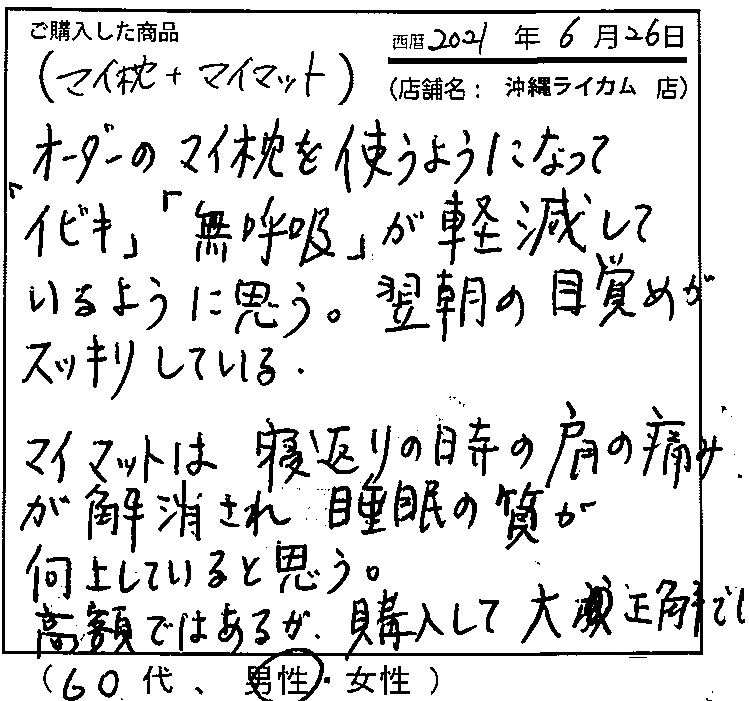 ご購入した商品
西暦2021年6月26日
(マイ枕+マイマット)
(店舗名: 沖縄ライカム 店)
オーダーのマイ枕を使うようになって
「イビキ」「無呼吸」が軽減して
いるように思う。翌朝の目覚めが
スッキリしている.
マイマットは寝返りの時の肩の痛み
が解消され睡眠の質が
向上していると思う。
高額ではあるが、購入して大正解でし
(60代、男性・女性)